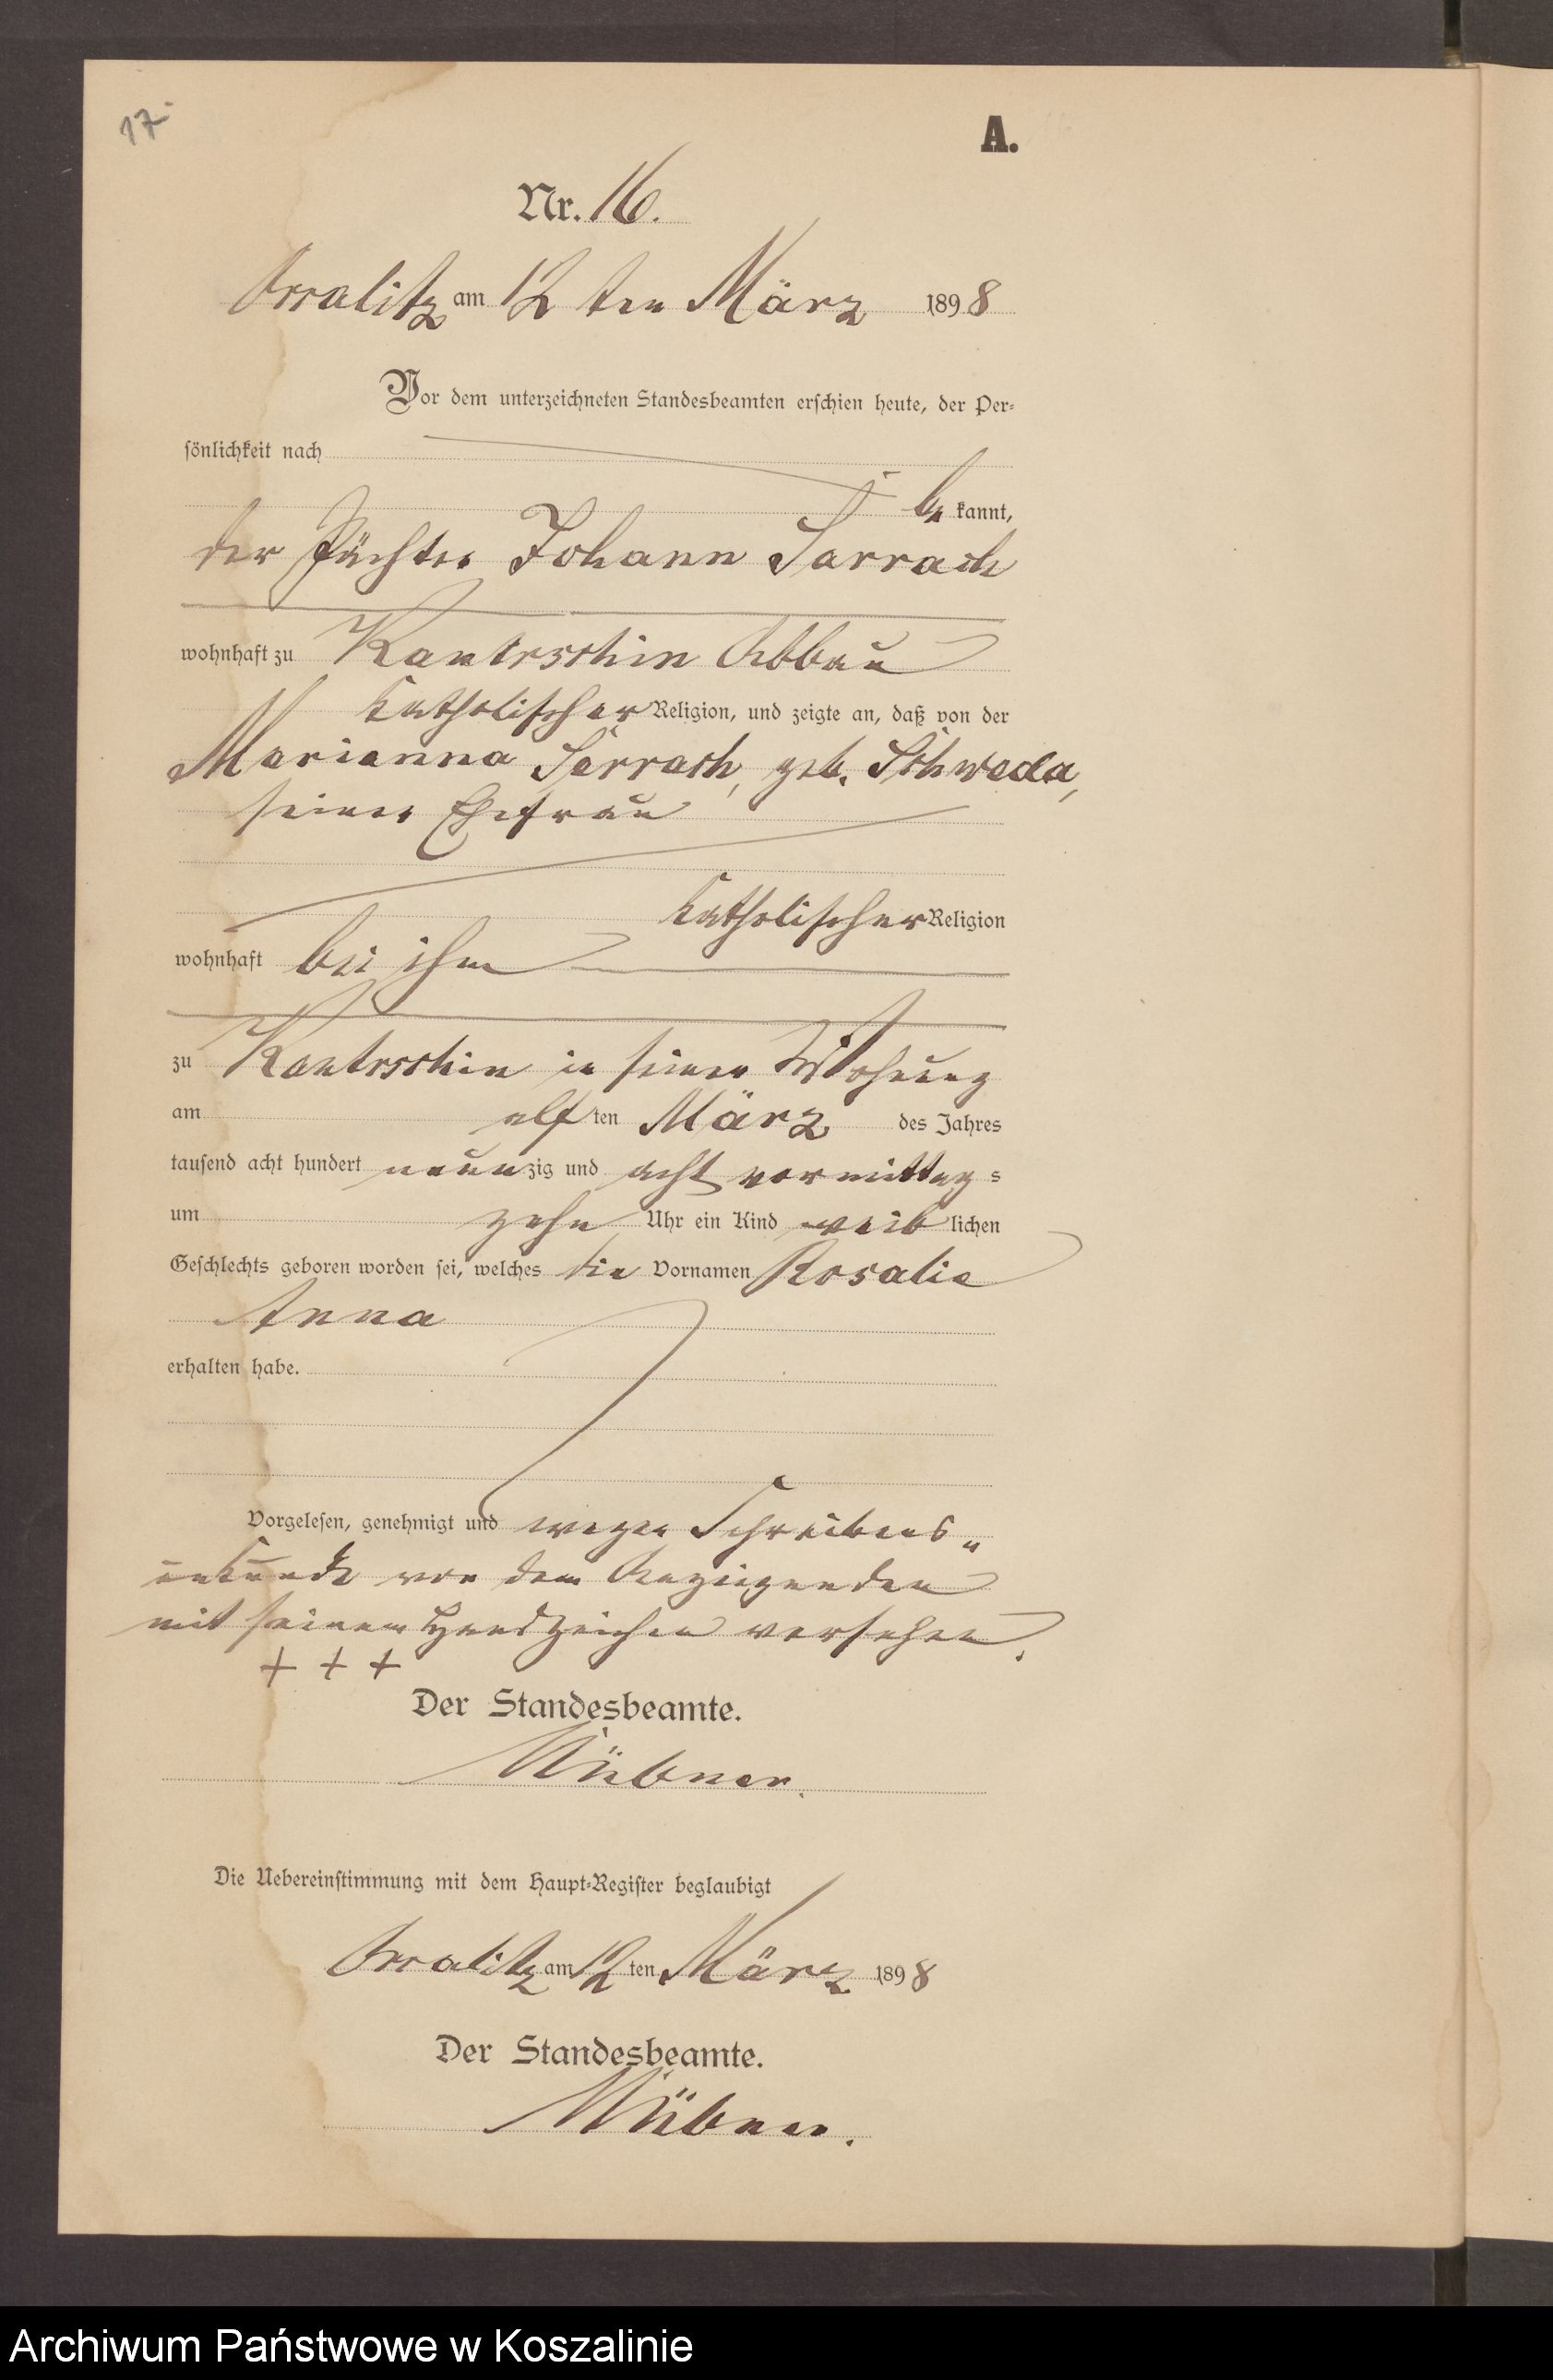 17
A.
Nr. 16.
am 12 ten März 1898
Vor dem unterzeichneten Standesbeamten erschien heute, der Per-
sönlichkeit nach
be kannt,
der Pächter Johann Sarrach
wohnhaft zu Kantrschin Abbau
katholischer Religion, und zeigte an, daß von der
Marianna Sarrach, geb. Schweda,
seiner Ehefrau
katholischer Religion
wohnhaft bei ihm
zu Kantrschin in seiner Wohnung
am elf ten März des Jahres
tausend acht hundert neunzig und acht vormittag-
um zehn Uhr ein Kind weib lichen
Geschlechts geboren worden sei, welches die Vornamen Rosalie
Anna
erhalten habe.
Vorgelesen, genehmigt und wegen Schreibens-
unkunde von dem Anzeigenden
mit seinem Handzeichen versehen.
+ + +
Der Standesbeamte.
Die Uebereinstimmung mit dem Haupt-Register beglaubigt
am 12 ten März 1898
Der Standesbeamte.
Archiwum Państwowe w Koszalinie